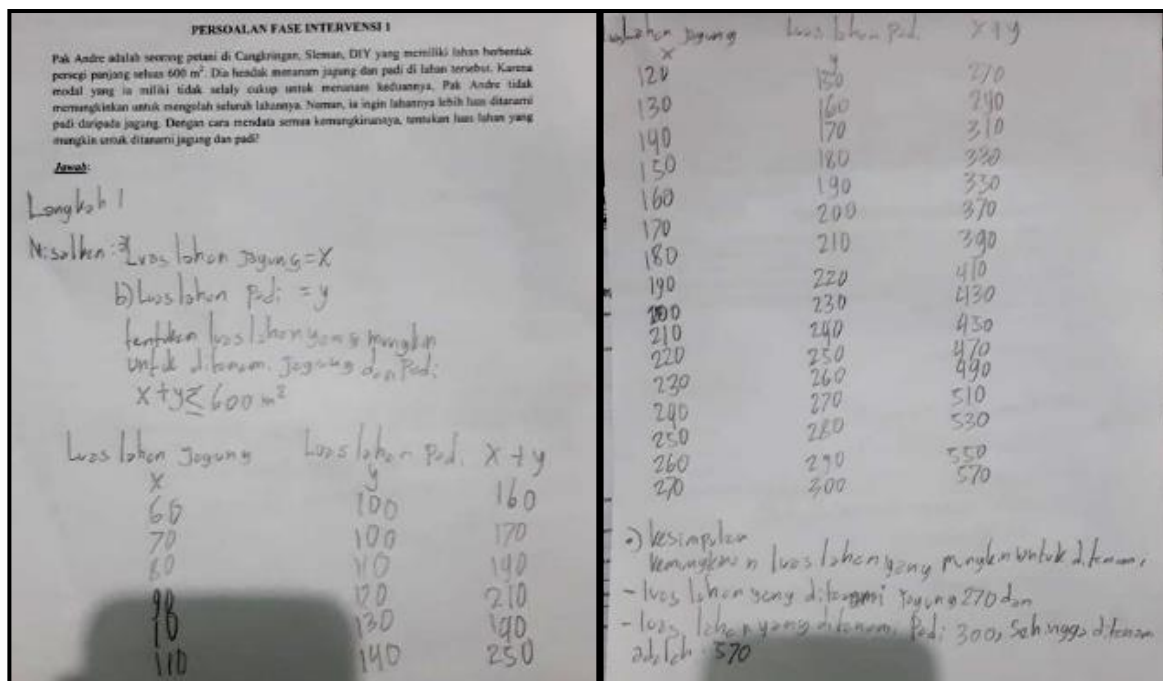 PERSOALAN FASE INTERVENSI 1
Pak Andre adalah seorang petani di Cangkringan, Sleman, DIY yang memiliki lahan berbentuk
persegi panjang seluas 600 m². Dia hendak menanam jagung dan padi di lahan tersebut. Karena
modal yang ia miliki tidak selalu cukup untuk menanam keduanya, Pak Andre tidak
memungkinkan untuk mengolah seluruh lahannya. Namun, ia ingin lahannya lebih luas ditanami
padi daripada jagung. Dengan cara mendata semua kemungkinannya, tentukan luas lahan yang
mungkin untuk ditanami jagung dan padi?
Jawab:
Langkah 1
Misalkan: a) Luas lahan Jagung = X
b) Luas lahan Padi = y
tentukan luas lahan yang mungkin
untuk ditanami Jagung dan Padi
X + y ≤ 600 m²
Luas lahan Jagung Luas lahan Padi X + y
X y
60 100 160
70 100 170
80 110 190
90 120 210
10 130 190
110 140 250
Lahan Jagung Luas lahan Padi X + y
X y
120 150 270
130 160 290
140 170 310
150 180 330
160 190 350
170 200 370
180 210 390
190 220 410
200 230 430
210 240 450
220 250 470
230 260 490
240 270 510
250 280 530
260 290 550
270 300 570
kesimpulan
kemungkinan luas lahan yang mungkin untuk ditanami
- luas lahan yang ditanami Jagung 270 dan
- luas lahan yang ditanam Padi 300, Sehingga ditanam
adalah 570